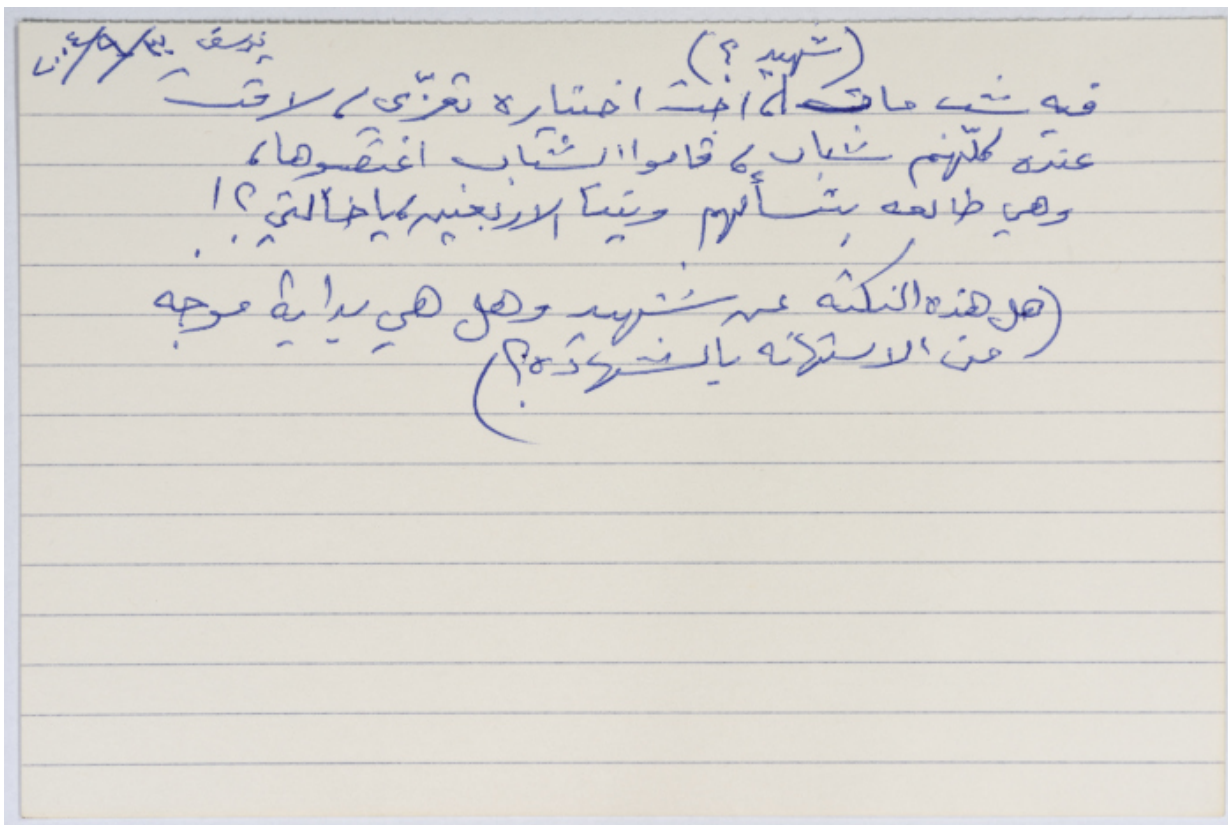 يوسف ٣٠/٥/٢٠٠٤
(شهيد؟)
فيه شب مات، اجت اختياره تعزّي، لاقت
عنده كلّهم شباب، قاموا الشباب اغتصبوها،
وهي طالعه بتسألهم ويتبا الاربعين، يا خالتي؟!
(هل هذه النكته عن شهيد وهل هي بداية موجه
من الاستهانه بالشهاده؟)